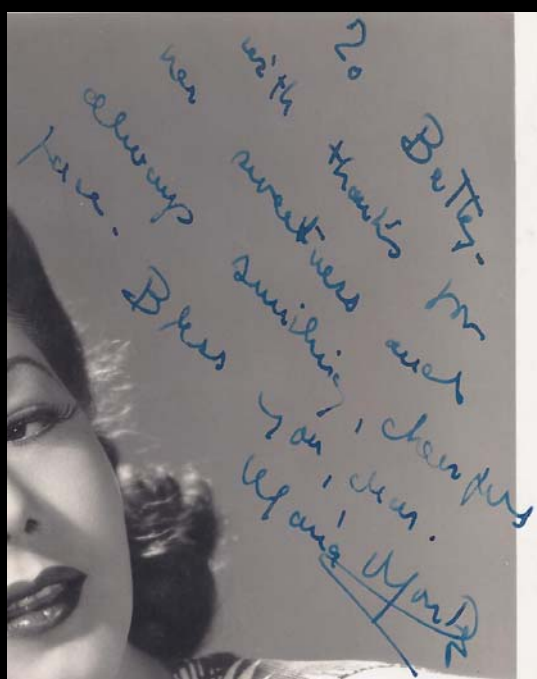 To Bettey.
with thanks for
her sweetness and
always smiling, cheerful
face. Bless you, dear.
Maria Montez